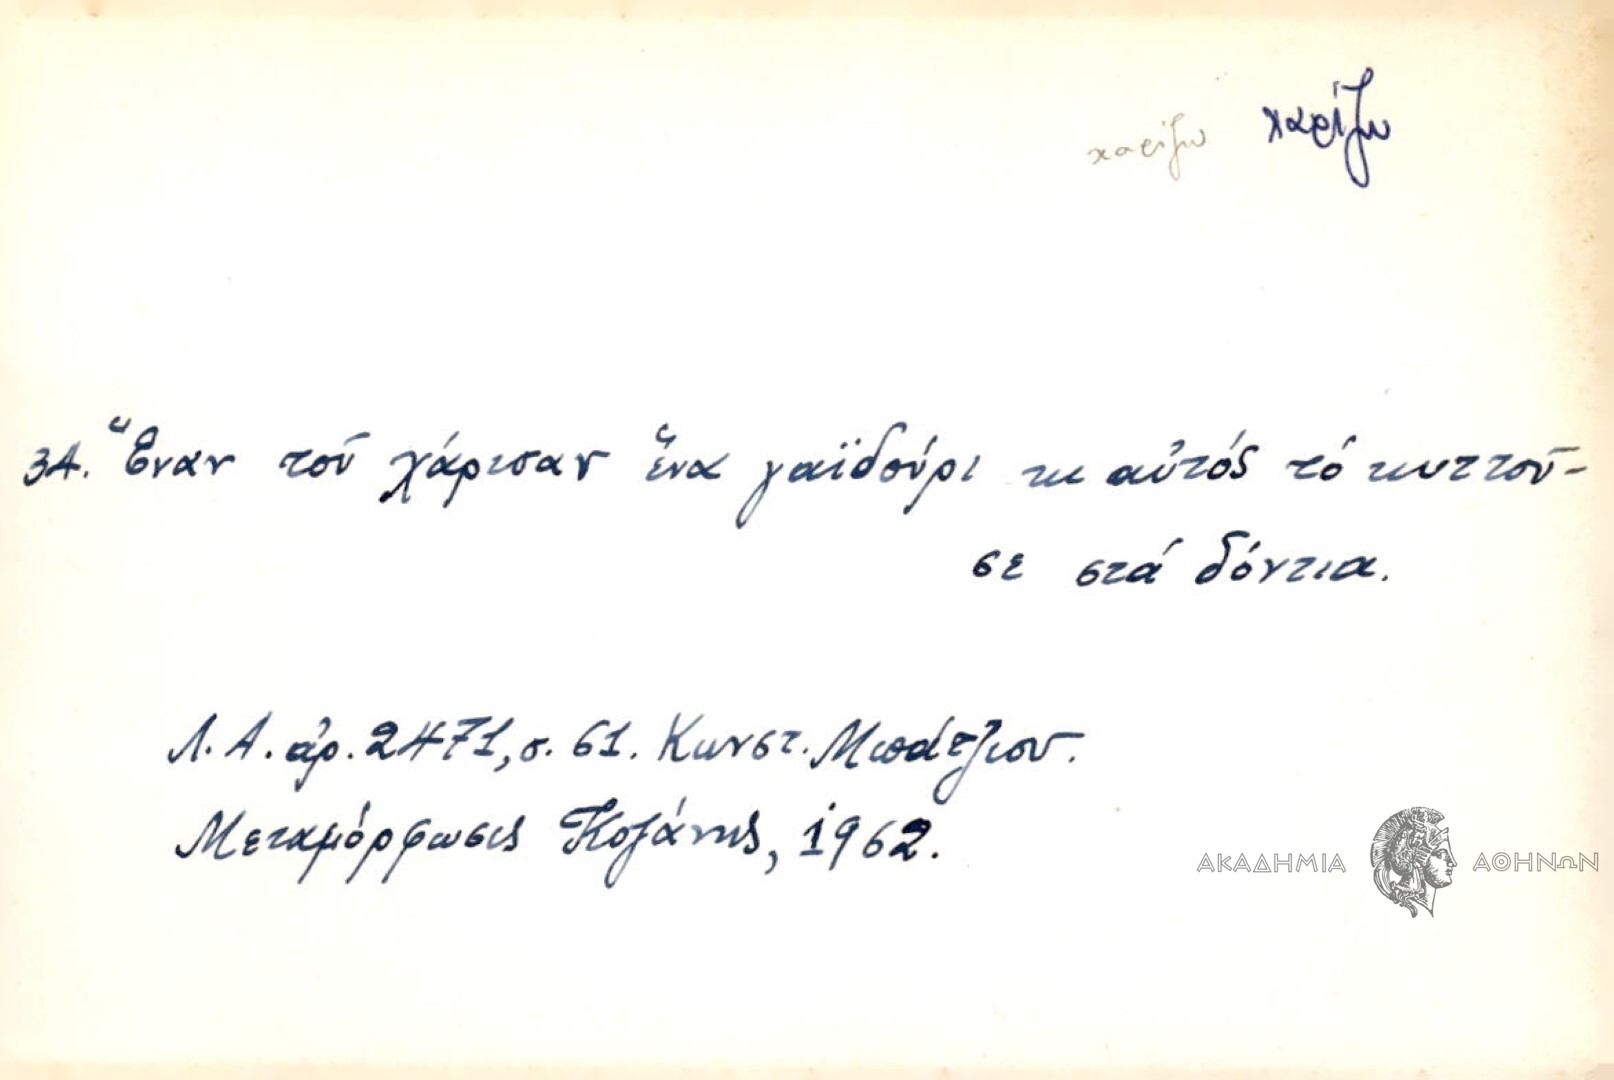 χαρίζω χαρίζω
34. Ἕναν τοῦ χάρισαν ἕνα γαϊδούρι κι αὐτός τό κυττοῦ-
σε στά δόντια.
Λ.Α. ἀρ. 2471, σ. 61. Κωνστ. Μπάτζιου.
Μεταμόρφωσις Κοζάνης, 1962.
ΑΚΑΔΗΜΙΑ ΑΘΗΝΩΝ